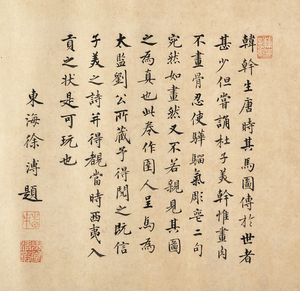 韓幹生唐時其馬圖傳於世者
甚少但嘗誦杜子美幹惟畫肉
不畫骨忍使驊騮氣彫喪二句
宛然如畫然又不若親見其圖
之為真也此卷作圉人呈馬為
太監劉公所藏予得閱之既信
子美之詩并得觀當時西夷入
貢之狀是可玩也
東海徐溥題